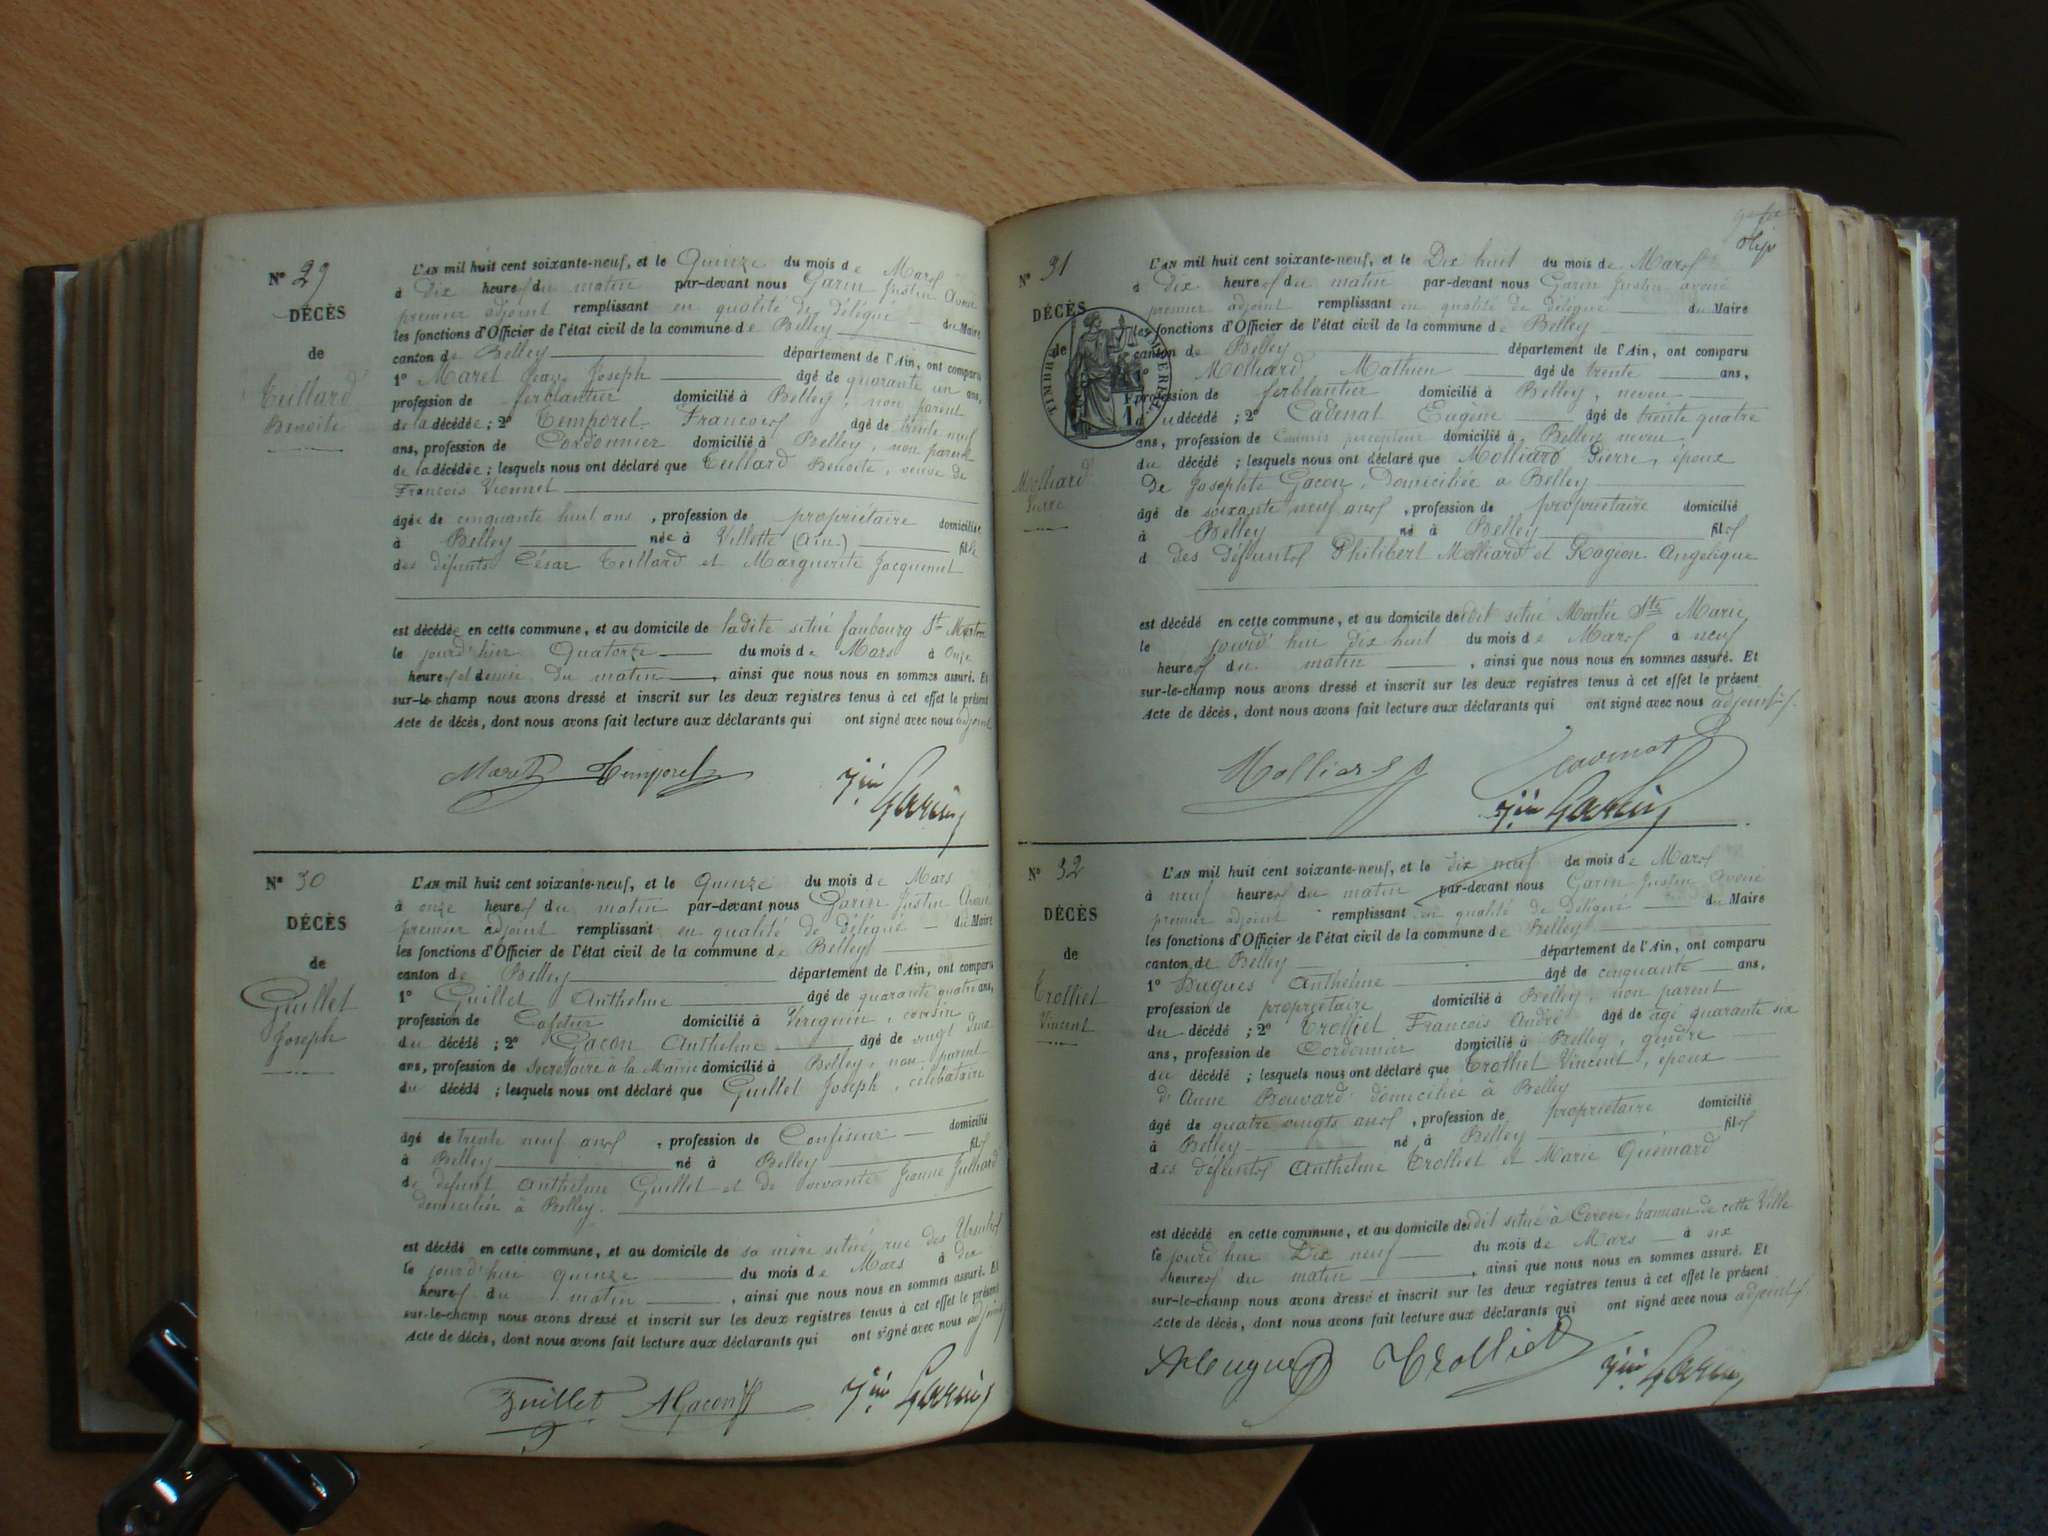 N° 29
DÉCÈS
de
Tuillard
Benoite
L'AN mil huit cent soixante-neuf, et le Quinze du mois de Mars
à Dix heures du matin par-devant nous Garin Justin Avoué
premier adjoint remplissant en qualité de délégué du Maire
les fonctions d'Officier de l'état civil de la commune de Belley
canton de Belley département de l'Ain, ont comparu
1° Maret Jean Joseph âgé de quarante un ans,
profession de ferblantier domicilié à Belley, non parent
de la décédée ; 2° Temporel François âgé de trente neuf
ans, profession de Cordonnier domicilié à Belley, non parent
de la décédée ; lesquels nous ont déclaré que Tuillard Benoite, veuve de
François Vionnet
âgée de cinquante huit ans , profession de propriétaire domiciliée
à Belley née à Villette (Ain) fille
des défunts César Tuillard et Marguerite Jacquemet
est décédée en cette commune, et au domicile de ladite situé faubourg St Martin
le jourd'hier Quatorze du mois de Mars à Onze
heures et demie du matin , ainsi que nous nous en sommes assuré. Et
sur-le-champ nous avons dressé et inscrit sur les deux registres tenus à cet effet le présent
Acte de décès, dont nous avons fait lecture aux déclarants qui ont signé avec nous adjoint
Maret Temporel Jin Garin
N° 30
DÉCÈS
de
Guillet
Joseph
L'AN mil huit cent soixante-neuf, et le Quinze du mois de Mars
à onze heures du matin par-devant nous Garin Justin Avoué
premier adjoint remplissant en qualité de délégué du Maire
les fonctions d'Officier de l'état civil de la commune de Belley
canton de Belley département de l'Ain, ont comparu
1° Guillet Anthelme âgé de quarante quatre ans,
profession de Cafetier domicilié à Virignin, cousin
du décédé ; 2° Gacon Anthelme âgé de vingt deux
ans, profession de Secrétaire à la Mairie domicilié à Belley, non parent
du décédé ; lesquels nous ont déclaré que Guillet Joseph, célibataire
âgé de trente neuf ans , profession de Confiseur domicilié
à Belley né à Belley fils
de défunt Anthelme Guillet et de vivante Jeanne Julliard
domiciliée à Belley.
est décédé en cette commune, et au domicile de sa mère situé rue des Ursules
le jourd'hui quinze du mois de Mars à dix
heures du matin , ainsi que nous nous en sommes assuré. Et
sur-le-champ nous avons dressé et inscrit sur les deux registres tenus à cet effet le présent
Acte de décès, dont nous avons fait lecture aux déclarants qui ont signé avec nous adjoint
Guillet AGacon Jin Garin
N° 31
DÉCÈS
de
TIMBRE IMPÉRIAL
1F
Molliard
Pierre
L'AN mil huit cent soixante-neuf, et le Dix huit du mois de Mars
à dix heures du matin par-devant nous Garin Justin avoué
premier adjoint remplissant en qualité de délégué du Maire
les fonctions d'Officier de l'état civil de la commune de Belley
canton de Belley département de l'Ain, ont comparu
1° Molliard Mathieu âgé de trente ans,
profession de ferblantier domicilié à Belley, neveu
du décédé ; 2° Cadenat Eugène âgé de trente quatre
ans, profession de Commis percepteur domicilié à Belley neveu
du décédé ; lesquels nous ont déclaré que Molliard Pierre, époux
de Josephte Gacon, Domiciliée à Belley
âgé de soixante neuf ans , profession de propriétaire domicilié
à Belley né à Belley fils
d des défunts Philibert Molliard et Rageon Angelique
est décédé en cette commune, et au domicile dedit situé Montée Ste Marie
le jourd'hui dix huit du mois de Mars à neuf
heures du matin , ainsi que nous nous en sommes assuré. Et
sur-le-champ nous avons dressé et inscrit sur les deux registres tenus à cet effet le présent
Acte de décès, dont nous avons fait lecture aux déclarants qui ont signé avec nous adjoint
Molliard Cadenat
Jin Garin
N° 32
DÉCÈS
de
Trolliet
Vincent
L'AN mil huit cent soixante-neuf, et le dix neuf du mois de Mars
à neuf heures du matin par-devant nous Garin Justin Avoué
premier adjoint remplissant en qualité de Délégué du Maire
les fonctions d'Officier de l'état civil de la commune de Belley
canton de Belley département de l'Ain, ont comparu
1° Hugues Anthelme âgé de cinquante ans,
profession de propriétaire domicilié à Belley, non parent
du décédé ; 2° Trolliet François André âgé de âgé quarante six
ans, profession de Cordonnier domicilié à Belley, gendre
du décédé ; lesquels nous ont déclaré que Trolliet Vincent, époux
d'Anne Bouvard domiciliée à Belley
âgé de quatre vingts ans , profession de propriétaire domicilié
à Belley né à Belley fils
des défunts Anthelme Trolliet et Marie Quémard
est décédé en cette commune, et au domicile dedit situé à Coron, hameau de cette Ville
le jourd'hui Dix neuf du mois de Mars à six
heures du matin , ainsi que nous nous en sommes assuré. Et
sur-le-champ nous avons dressé et inscrit sur les deux registres tenus à cet effet le présent
Acte de décès, dont nous avons fait lecture aux déclarants qui ont signé avec nous adjoint
AHugues Trolliet Jin Garin